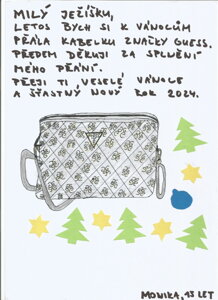 MILÝ JEŽÍŠKU,
LETOS BYCH SI K VÁNOCŮM
PŘÁLA KABELKU ZNAČKY GUESS.
PŘEDEM DĚKUJI ZA SPLNĚNÍ
MÉHO PŘÁNÍ.
PŘEJI TI VESELÉ VÁNOCE
A ŠŤASTNÝ NOVÝ ROK 2024.
MONIKA, 43 LET